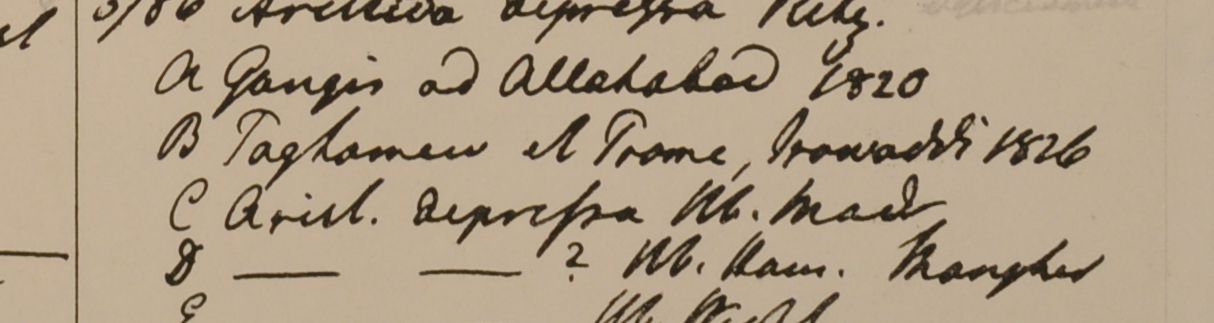 Aristida depressa Retz.
A Gangis ad Allahabad 1820
B Taghamew et Prome, Irawaddi 1826
C Arist. depressa Hb. Madr
D — — ? Hb. Ham.
E Hb. Wight